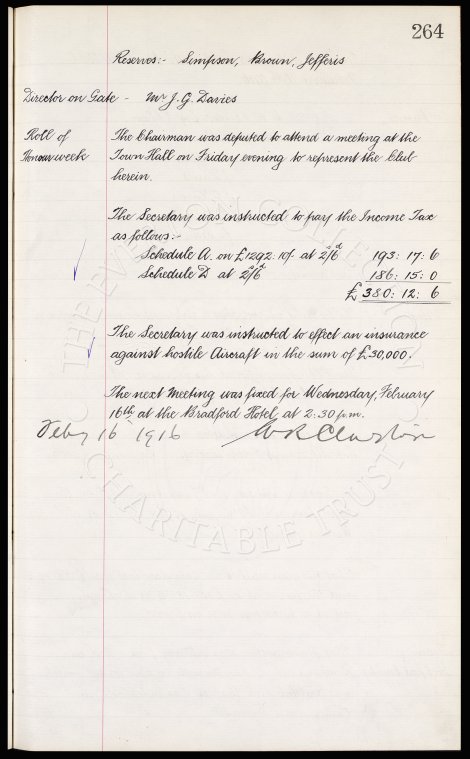 264
Reserves:- Simpson, Brown, Jefferis
Director on Gate - Mr J. G. Davies
Roll of Honour week
The Chairman was deputed to attend a meeting at the
Town Hall on Friday evening to represent the Club
herein.
The Secretary was instructed to pay the Income Tax
as follows:-
Schedule A. on £1292: 10/- at 2/6d 193: 17: 6
Schedule D at 2/6d 186: 15: 0
£ 380: 12: 6
The Secretary was instructed to effect an insurance
against hostile Aircraft in the sum of £30,000.
The next Meeting was fixed for Wednesday, February
16th, at the Bradford Hotel, at 2:30 p.m.
Feby 16 1916 W R Clayton
THE EVERTON COLLECTION
CHARITABLE TRUST